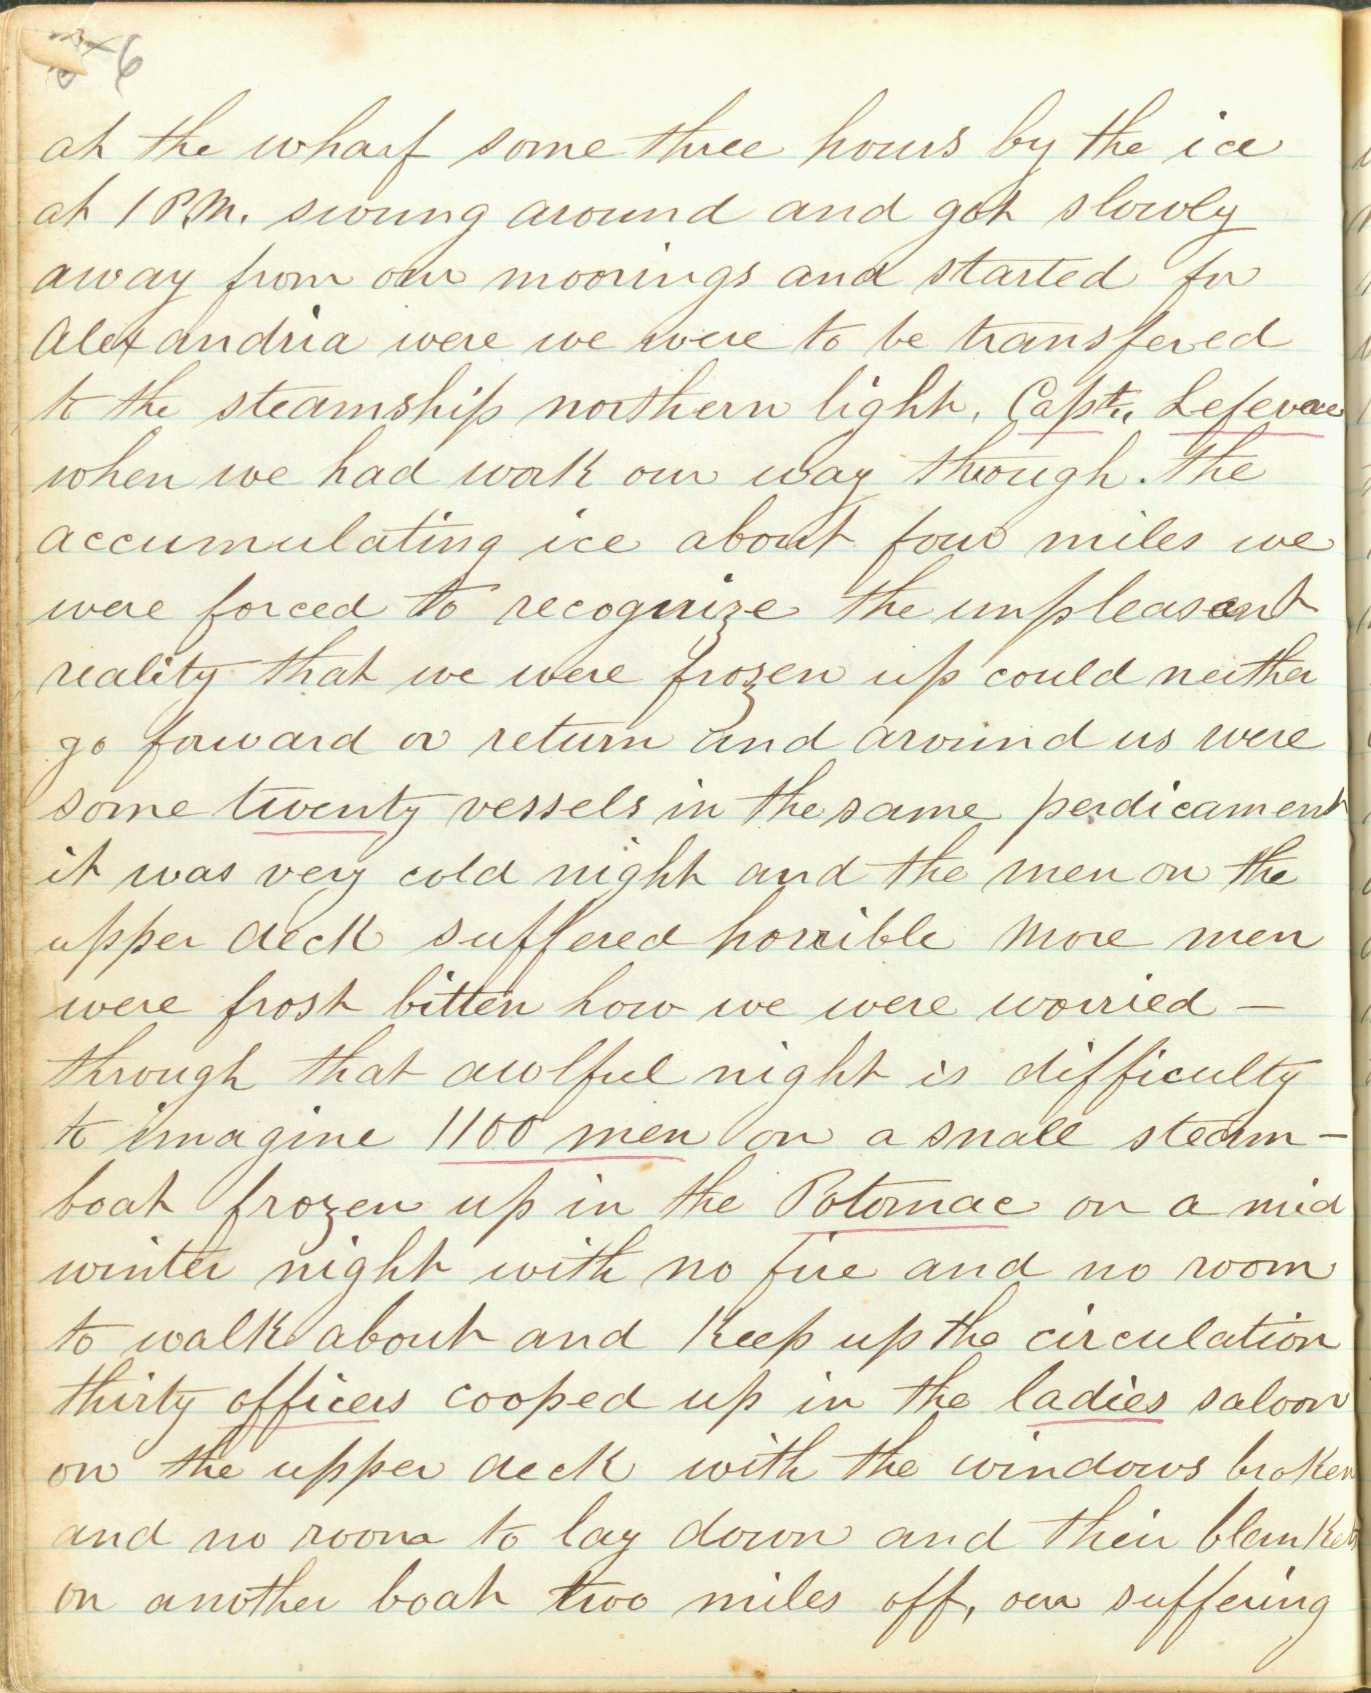 6
at the wharf some three hours by the ice
at 1 P.M. swung around and got slowly
away from our moorings and started for
Alexandria were we were to be transfered
to the steamship northern light, Capt. Lefevre
when we had work our way through. the
accumulating ice about four miles we
were forced to recognize the unpleasant
reality that we were frozen up could neither
go forward or return and around us were
some twenty vessels in the same perdicament
it was very cold night and the men on the
upper deck suffered horrible More men
were frost bitten how we were worried —
through that awlful night is difficulty
to imagine 1100 men on a small steam-
boat frozen up in the Potomac on a mid
winter night with no fire and no room
to walk about and Keep up the circulation
thirty officers cooped up in the ladies saloon
on the upper deck with the windows broken
and no room to lay down and their blankets
on another boat two miles off, our suffering